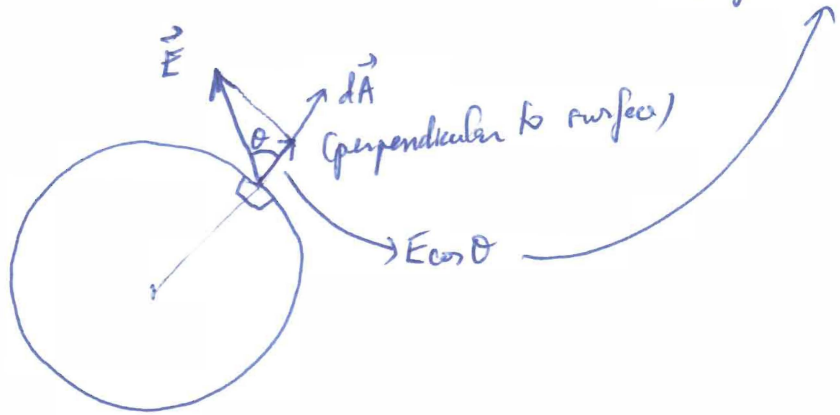 E⃗
dA⃗
θ (perpendicular to surface)
E cos θ